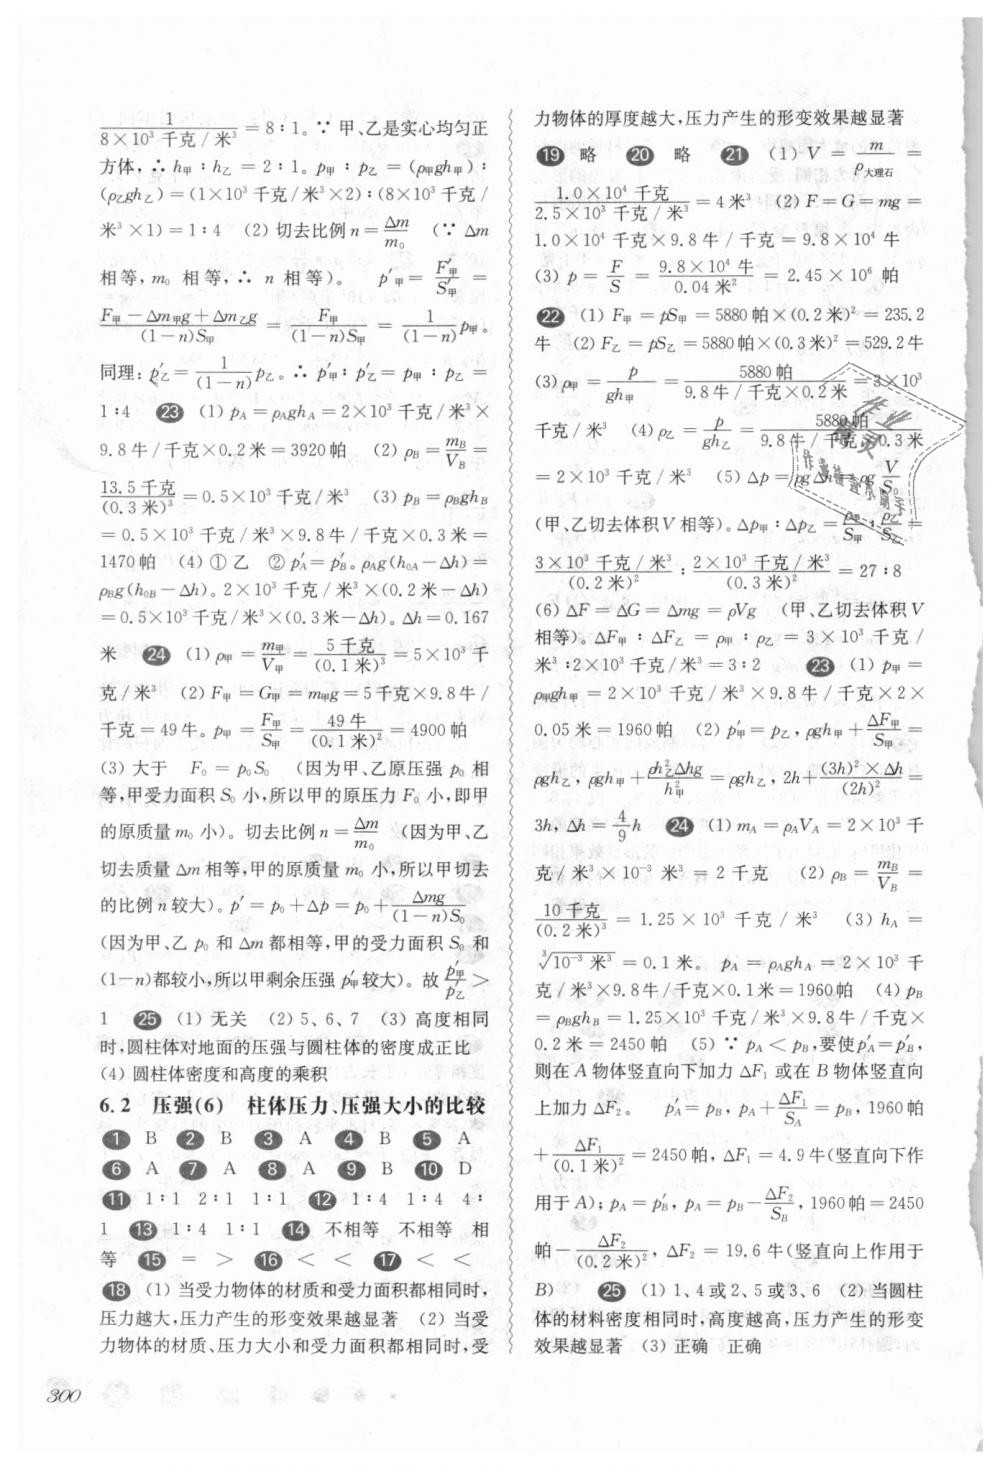 1/(8×10³ 千克/米³) = 8∶1。∵ 甲、乙是实心均匀正
方体，∴ h甲∶h乙 = 2∶1。p甲∶p乙 = (ρ甲gh甲)∶
(ρ乙gh乙) = (1×10³ 千克/米³×2)∶(8×10³ 千克/
米³×1) = 1∶4 (2) 切去比例 n = Δm/m₀ (∵ Δm
相等，m₀ 相等，∴ n 相等)。 p′甲 = F′甲/S′甲 =
(F甲−Δm甲g+Δm乙g)/((1−n)S甲) = F甲/((1−n)S甲) = 1/(1−n) p甲。
同理：p′乙 = 1/(1−n) p乙。∴ p′甲∶p′乙 = p甲∶p乙 =
1∶4 23 (1) pA = ρAghA = 2×10³ 千克/米³×
9.8 牛/千克×0.2 米 = 3920 帕 (2) ρB = mB/VB =
13.5 千克/(0.3 米)³ = 0.5×10³ 千克/米³ (3) pB = ρBghB
= 0.5×10³ 千克/米³×9.8 牛/千克×0.3 米 =
1470 帕 (4) ① 乙 ② p′A = p′B。ρAg(h0A−Δh) =
ρBg(h0B−Δh)。2×10³ 千克/米³×(0.2 米−Δh)
= 0.5×10³ 千克/米³×(0.3 米−Δh)。Δh = 0.167
米 24 (1) ρ甲 = m甲/V甲 = 5 千克/(0.1 米)³ = 5×10³ 千
克/米³ (2) F甲 = G甲 = m甲g = 5 千克×9.8 牛/
千克 = 49 牛。p甲 = F甲/S甲 = 49 牛/(0.1 米)² = 4900 帕
(3) 大于 F₀ = p₀S₀ (因为甲、乙原压强 p₀ 相
等，甲受力面积 S₀ 小，所以甲的原压力 F₀ 小，即甲
的原质量 m₀ 小)。切去比例 n = Δm/m₀ (因为甲、乙
切去质量 Δm 相等，甲的原质量 m₀ 小，所以甲切去
的比例 n 较大)。p′ = p₀+Δp = p₀+Δmg/((1−n)S₀)
(因为甲、乙 p₀ 和 Δm 都相等，甲的受力面积 S₀ 和
(1−n)都较小，所以甲剩余压强 p′甲 较大)。故 p′甲/p′乙 >
1 25 (1) 无关 (2) 5、6、7 (3) 高度相同
时，圆柱体对地面的压强与圆柱体的密度成正比
(4) 圆柱体密度和高度的乘积
6.2 压强(6) 柱体压力、压强大小的比较
1 B 2 B 3 A 4 B 5 A
6 A 7 A 8 A 9 B 10 D
11 1∶1 2∶1 1∶1 12 1∶4 1∶4 4∶
1 13 1∶4 1∶1 14 不相等 不相等 相
等 15 = > 16 < < 17 < <
18 (1) 当受力物体的材质和受力面积都相同时，
压力越大，压力产生的形变效果越显著 (2) 当受
力物体的材质、压力大小和受力面积都相同时，受
力物体的厚度越大，压力产生的形变效果越显著
19 略 20 略 21 (1) V = m/ρ大理石 =
1.0×10⁴ 千克/(2.5×10³ 千克/米³) = 4 米³ (2) F = G = mg =
1.0×10⁴ 千克×9.8 牛/千克 = 9.8×10⁴ 牛
(3) p = F/S = 9.8×10⁴ 牛/0.04 米² = 2.45×10⁶ 帕
22 (1) F甲 = pS甲 = 5880 帕×(0.2 米)² = 235.2
牛 (2) F乙 = pS乙 = 5880 帕×(0.3 米)² = 529.2 牛
(3) ρ甲 = p/gh甲 = 5880 帕/(9.8 牛/千克×0.2 米) = 3×10³
千克/米³ (4) ρ乙 = p/gh乙 = 5880 帕/(9.8 牛/千克×0.3 米)
= 2×10³ 千克/米³ (5) Δp = ρgΔh = ρg V/S。
(甲、乙切去体积 V 相等)。Δp甲∶Δp乙 = ρ甲/S甲∶ρ乙/S乙 =
3×10³ 千克/米³/(0.2 米)²∶2×10³ 千克/米³/(0.3 米)² = 27∶8
(6) ΔF = ΔG = Δmg = ρVg (甲、乙切去体积 V
相等)。ΔF甲∶ΔF乙 = ρ甲∶ρ乙 = 3×10³ 千克/
米³∶2×10³ 千克/米³ = 3∶2 23 (1) p甲 =
ρ甲gh甲 = 2×10³ 千克/米³×9.8 牛/千克×2×
0.05 米 = 1960 帕 (2) p′甲 = p乙，ρgh甲+ΔF甲/S甲 =
ρgh乙，ρgh甲+ρh²乙Δhg/h²甲 = ρgh乙，2h+(3h)²×Δh/(2h)² =
3h，Δh = 4/9 h 24 (1) mA = ρAVA = 2×10³ 千
克/米³×10⁻³ 米³ = 2 千克 (2) ρB = mB/VB =
10 千克/(0.2 米)³ = 1.25×10³ 千克/米³ (3) hA =
∛(10⁻³ 米³) = 0.1 米。 pA = ρAghA = 2×10³ 千
克/米³×9.8 牛/千克×0.1 米 = 1960 帕 (4) pB
= ρBghB = 1.25×10³ 千克/米³×9.8 牛/千克×
0.2 米 = 2450 帕 (5) ∵ pA < pB，要使 p′A = p′B，
则在 A 物体竖直向下加力 ΔF₁ 或在 B 物体竖直向
上加力 ΔF₂。 p′A = pB，pA+ΔF₁/SA = pB，1960 帕
+ΔF₁/(0.1 米)² = 2450 帕，ΔF₁ = 4.9 牛(竖直向下作
用于 A)；pA = p′B，pA = pB−ΔF₂/SB，1960 帕 = 2450
帕−ΔF₂/(0.2 米)²，ΔF₂ = 19.6 牛(竖直向上作用于
B) 25 (1) 1、4 或 2、5 或 3、6 (2) 当圆柱
体的材料密度相同时，高度越高，压力产生的形变
效果越显著 (3) 正确 正确
300